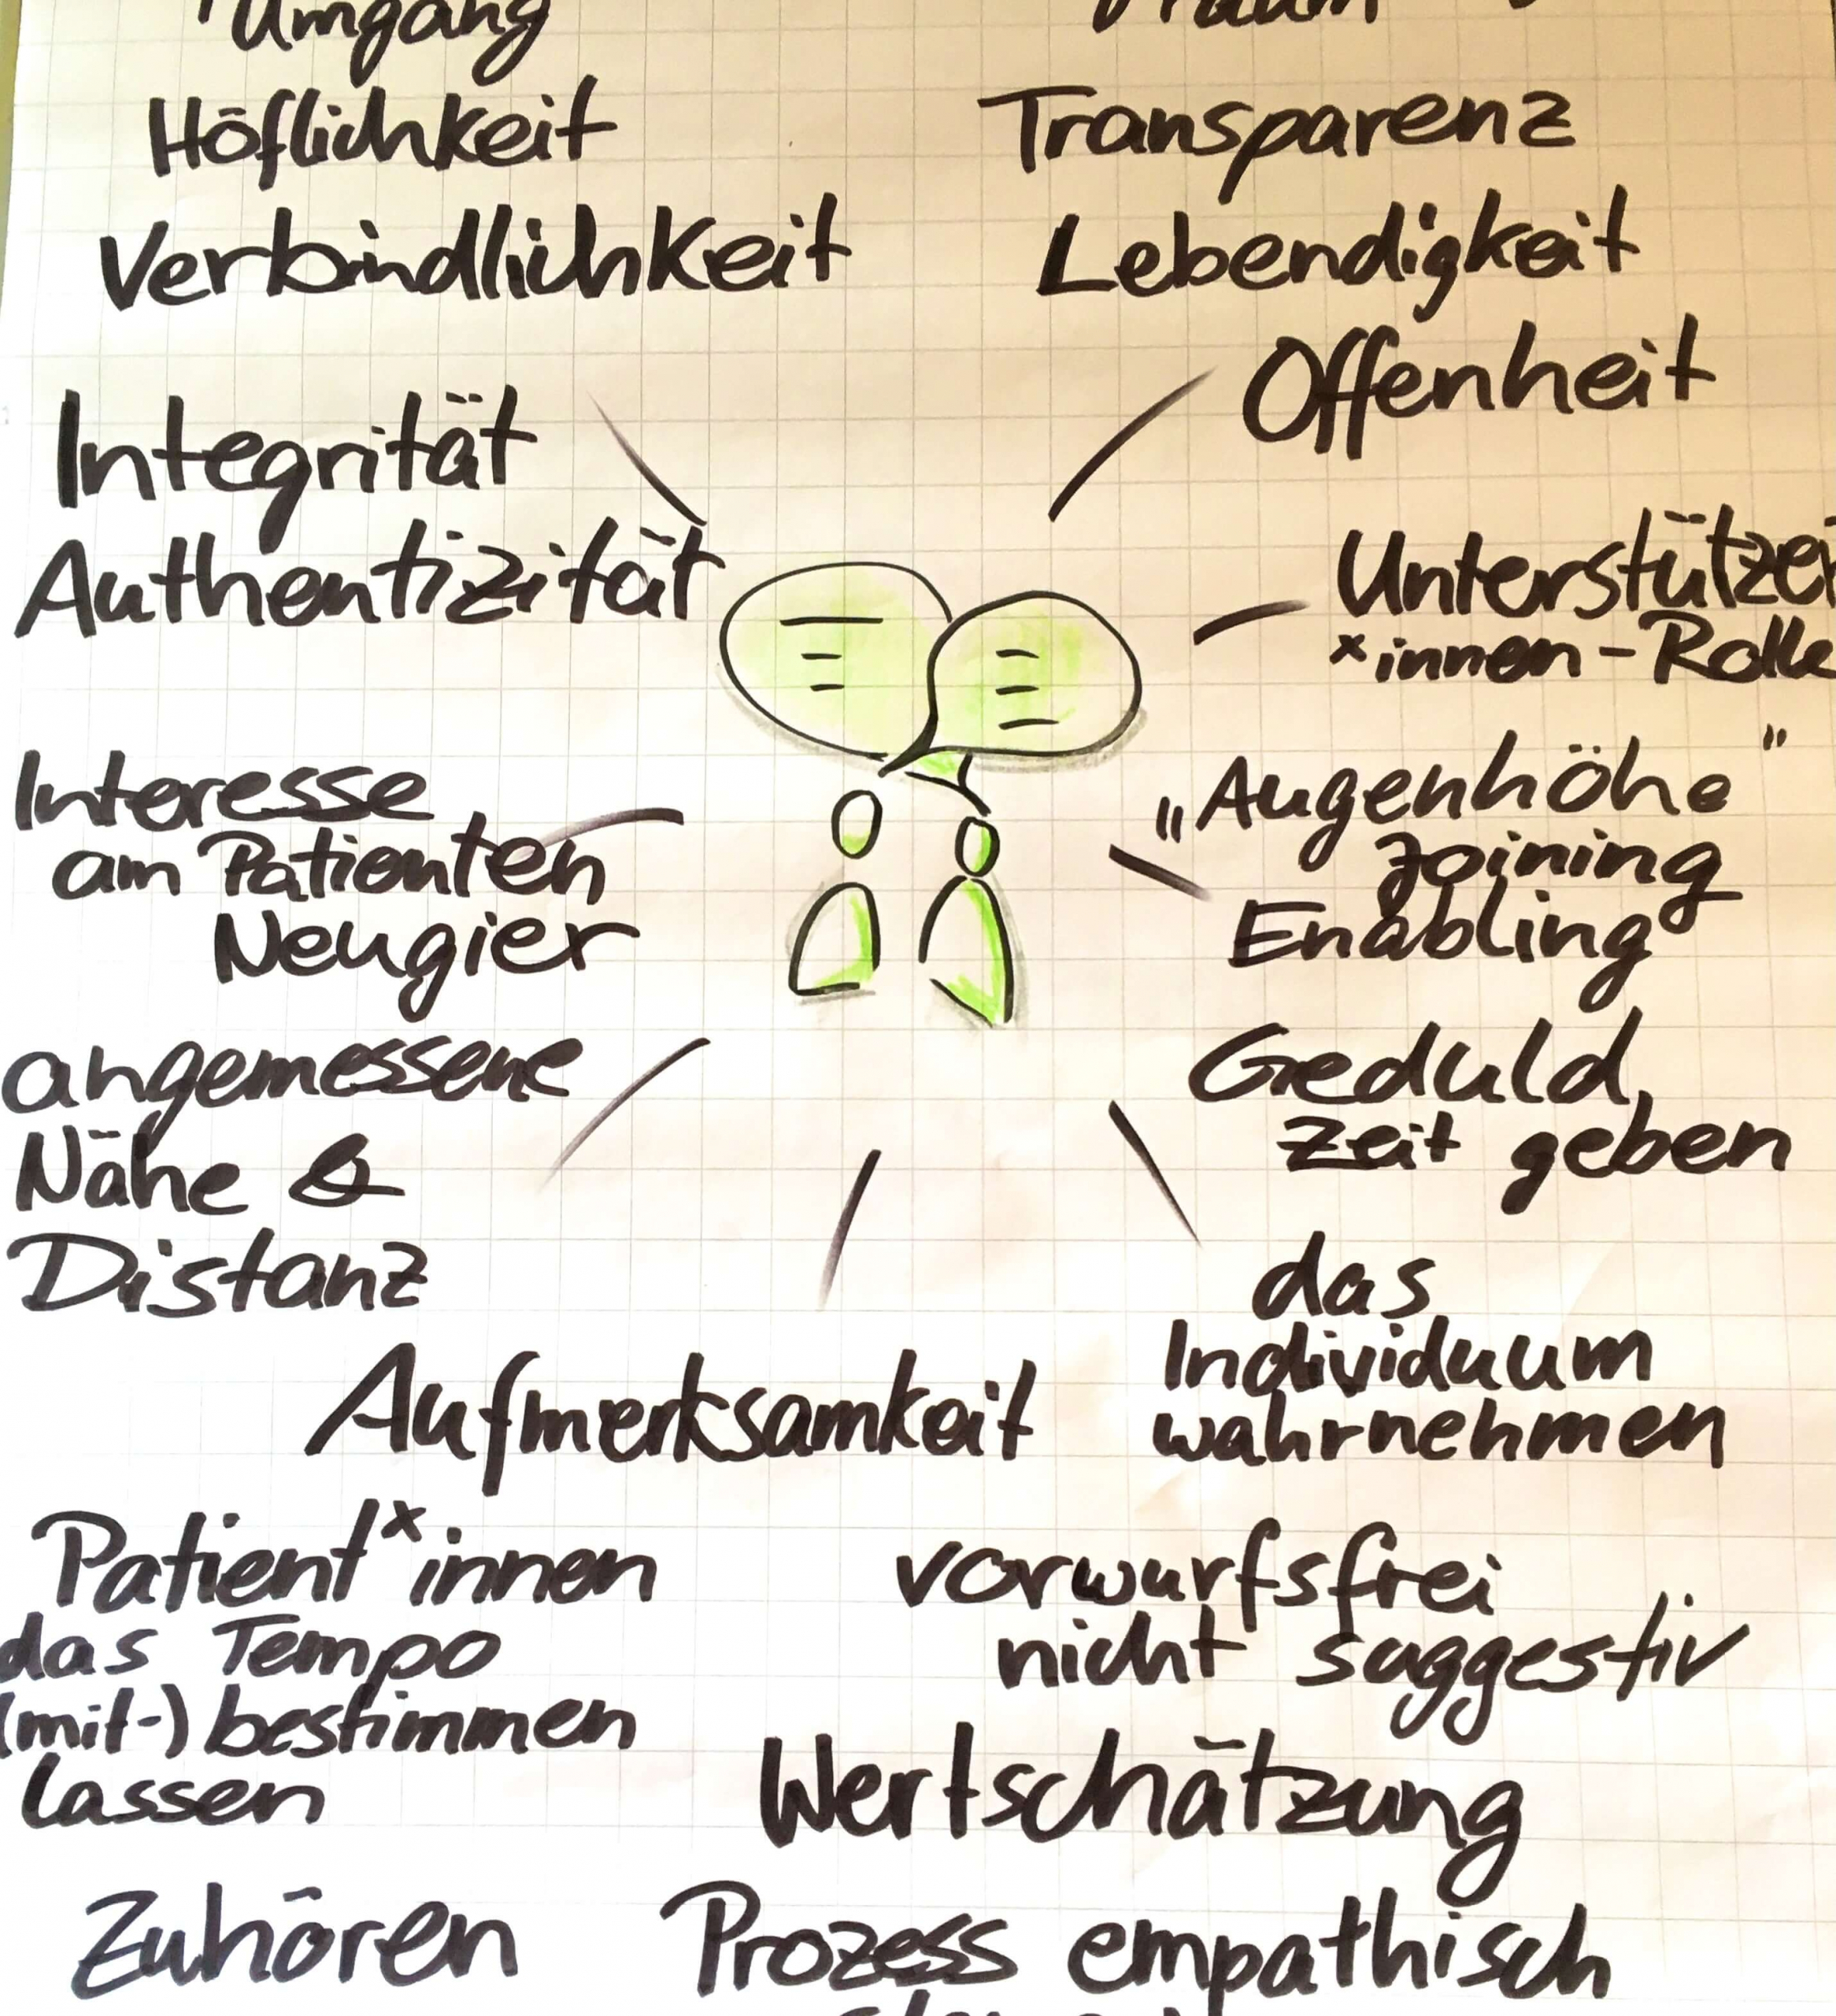 Umgang
Höflichkeit
Verbindlichkeit
Integrität
Authentizität
Interesse
am Patienten
Neugier
angemessene
Nähe &
Distanz
Transparenz
Lebendigkeit
Offenheit
Unterstützer
*innen-Rolle
„Augenhöhe"
Joining
Enabling
Geduld,
Zeit geben
das
Individuum
wahrnehmen
Aufmerksamkeit
Patient*innen
das Tempo
(mit-) bestimmen
lassen
vorwurfsfrei
nicht suggestiv
Wertschätzung
Zuhören
Prozess empathisch